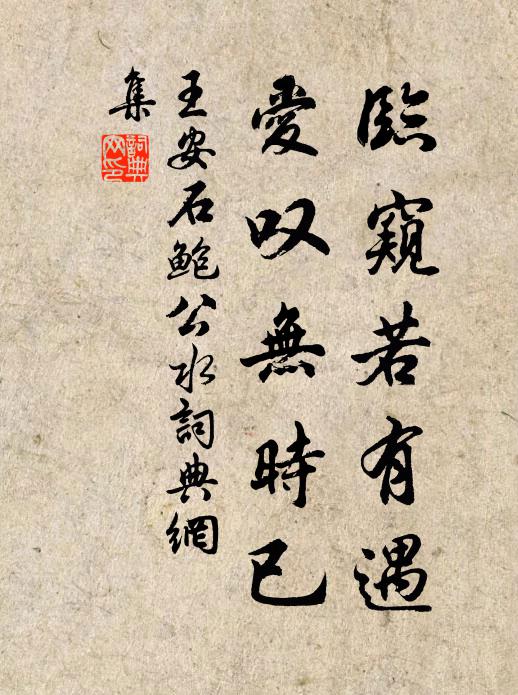 臨窺若有遇
愛叹無時已
王安石鲍公水詞典網
集
詞典网印